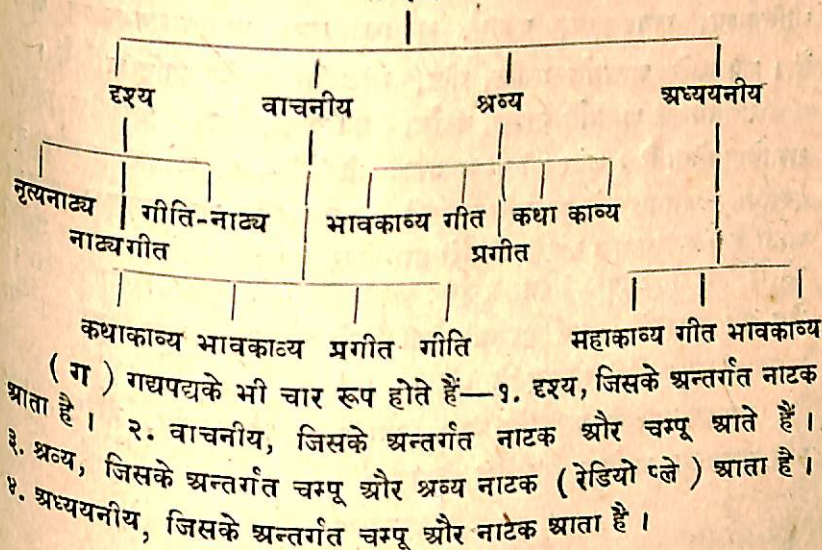 दृश्य वाचनीय श्रव्य अध्ययनीय
नृत्यनाट्य गीति-नाट्य भावकाव्य गीत कथा काव्य
नाट्यगीत प्रगीत
कथाकाव्य भावकाव्य प्रगीत गीति महाकाव्य गीत भावकाव्य
( ग ) गद्यपद्यके भी चार रूप होते हैं—१. दृश्य, जिसके अन्तर्गत नाटक
आता है । २. वाचनीय, जिसके अन्तर्गत नाटक और चम्पू आते हैं ।
३. श्रव्य, जिसके अन्तर्गत चम्पू और श्रव्य नाटक ( रेडियो प्ले ) आता है ।
४. अध्ययनीय, जिसके अन्तर्गत चम्पू और नाटक आता है ।